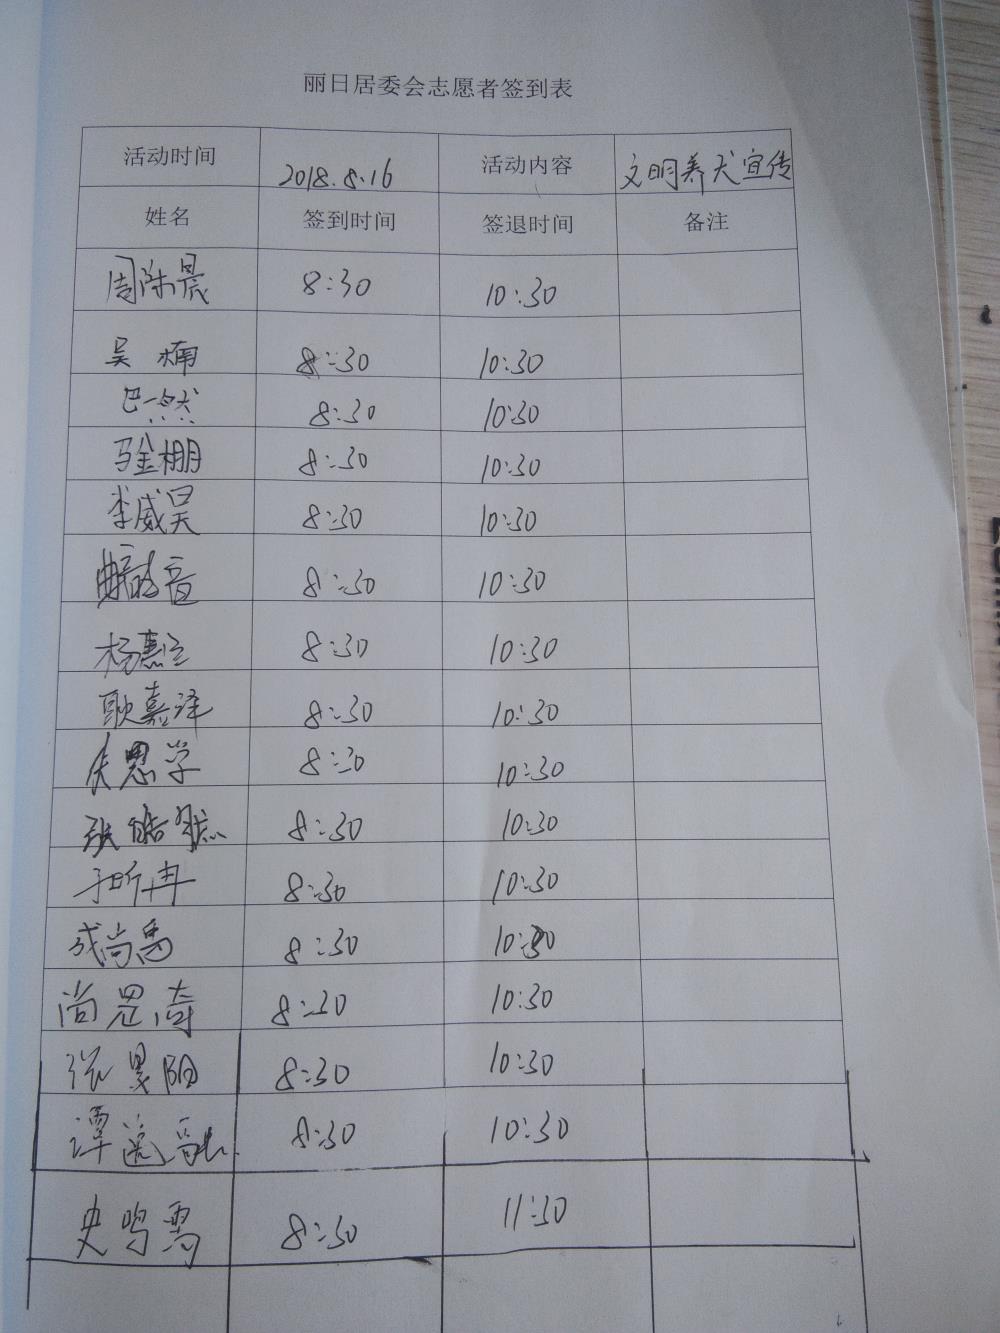 丽日居委会志愿者签到表
活动时间 2018.8.16 活动内容 文明养犬宣传
姓名 签到时间 签退时间 备注
周陈晨 8:30 10:30
吴楠 8:30 10:30
巴一然 8:30 10:30
马金棚 8:30 10:30
李威昊 8:30 10:30
音 8:30 10:30
杨 8:30 10:30
耿嘉泽 8:30 10:30
思学 8:30 10:30
张皓然 8:30 10:30
于昕冉 8:30 10:30
成尚禹 8:30 10:30
尚思琦 8:30 10:30
张昊阳 8:30 10:30
谭 8:30 10:30
史鸣雪 8:30 11:30